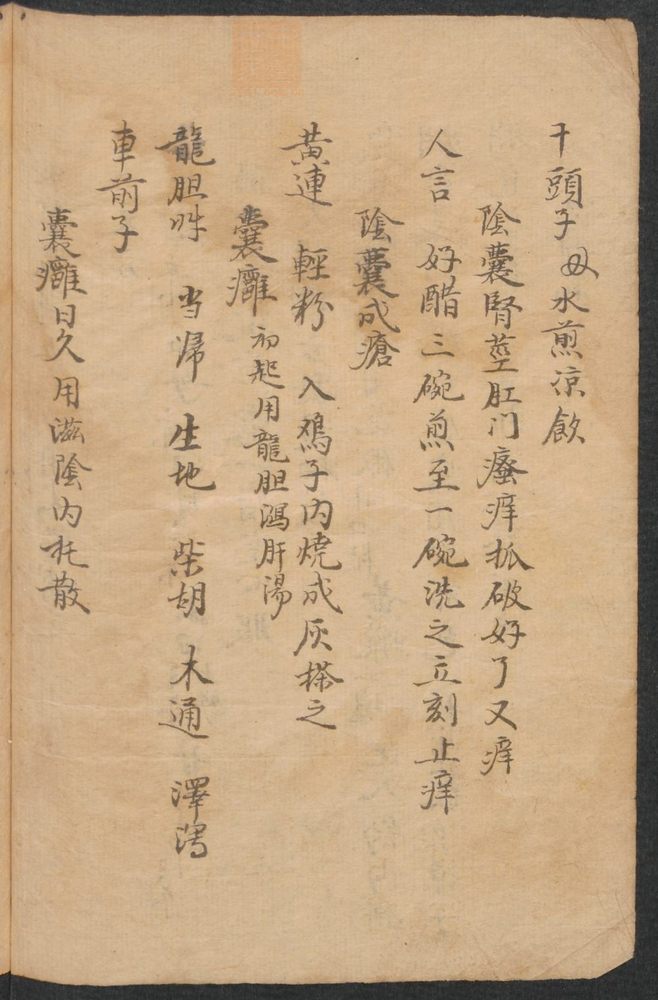 干頭子 母 水煎凉飲
陰囊腎莖肛门癢痒抓破好了又痒
人言 好醋三碗煎至一碗洗之立刻止痒
陰囊成瘡
黃連 輕粉 入鸡子内燒成灰搽之
囊癰 初起用龍胆瀉肝湯
龍胆 当归 生地 柴胡 木通 澤瀉
車前子
囊癰日久用滋陰内托散